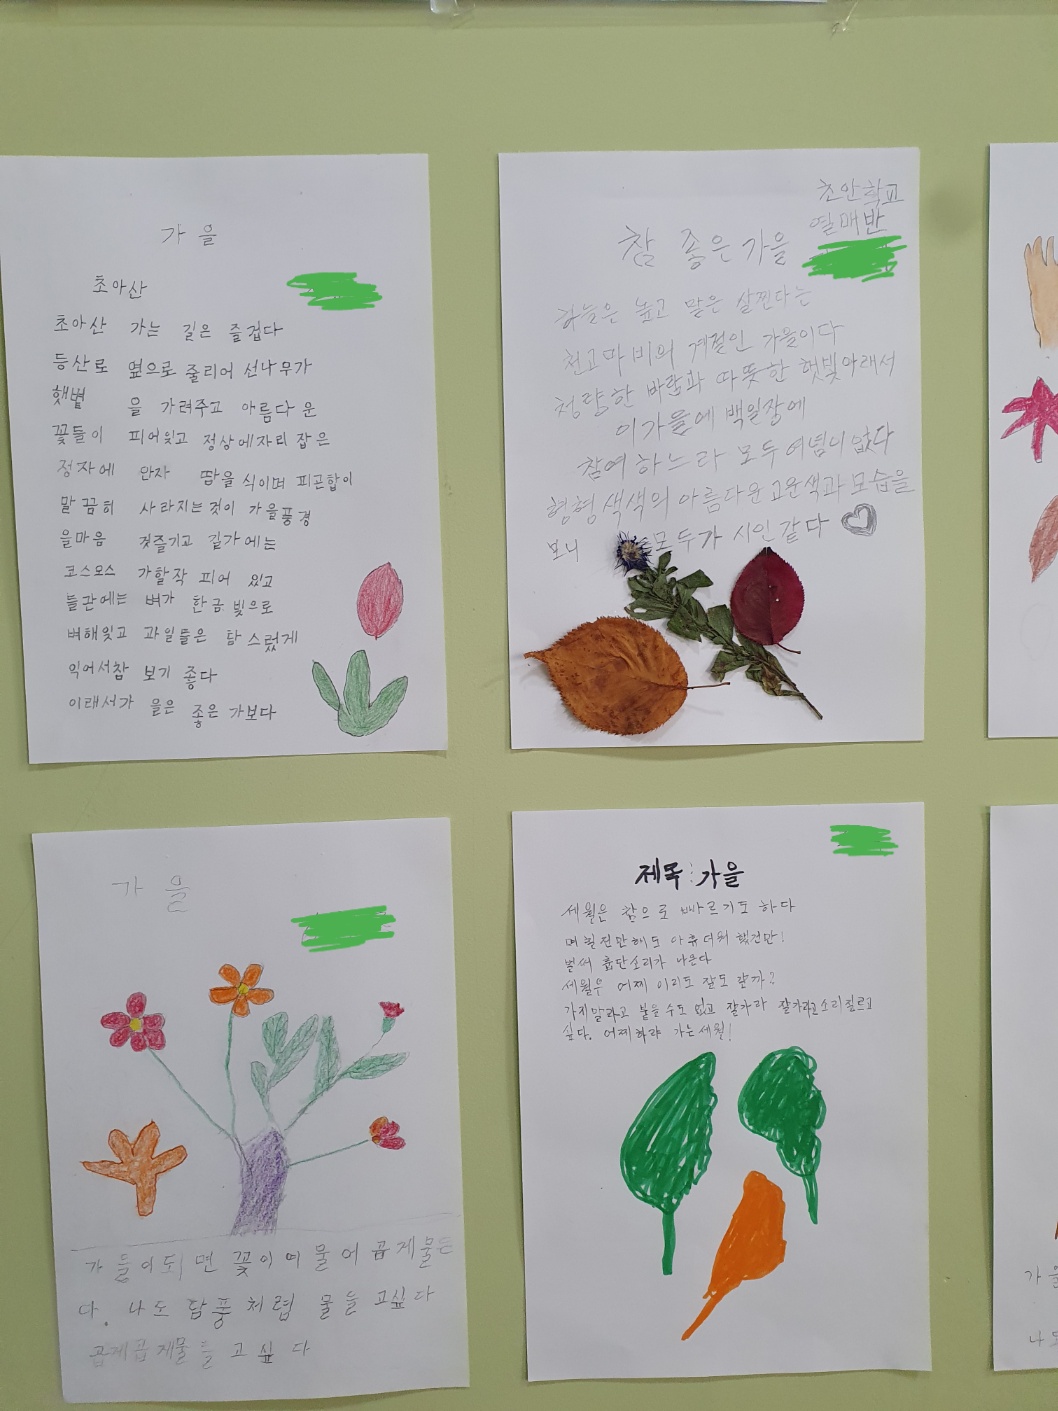 가을
초아산
초아산 가는 길은 즐겁다
등산로 옆으로 줄리어 선나무가
햇볕 을 가려주고 아름다운
꽃들이 피어잇고 정상에자리 잡은
정자에 안자 땀을 식이며 피곤합이
말끔히 사라지는것이 가을풍경
을마음 껏즐기고 길가에는
코스모스 가할작 피어 있고
들관에는 벼가 한금빛으로
벼해잇고 과일들은 탐스럽게
익어서참 보기 좋다
이래서가 을은 좋은 가보다
초안학교
열매반
참 좋은 가을
하늘은 높고 말은 살찐다는
천고마비의 계절인 가을이다
청량한 바람과 따뜻한 햇빛아래서
이가을에 백일장에
참여하느라 모두 여념이없다
형형색색의 아름다운고운색과모습을
보니 모두가 시인같다
가을
가들이되면 꽃이여물어곱게물든
다. 나도 담풍처렴 물들고싶다
곱게곱게물들고싶다
제목:가을
세월은 참으로 빠르기도 하다
며칠전만해도 아휴더워했건만!
벌써 춥단소리가 나온다
세월은 어찌 이리도 잘도 갈까?
가지말라고 붙을수도 없고 잘가라 잘가라고소리질르고
싶다. 어찌하랴 가는세월!
가을